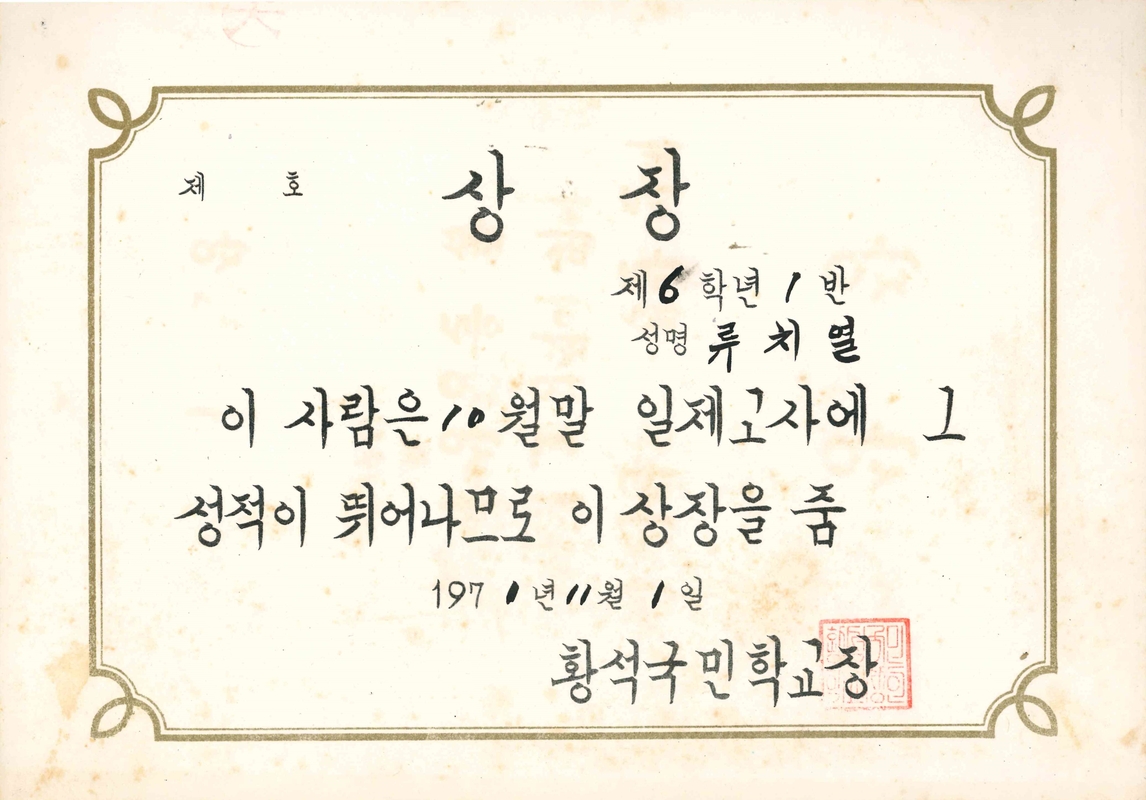 제 호 상 장
제6학년 1반
성명 류치열
이 사람은 10월말 일제고사에 그
성적이 뛰어나므로 이 상장을 줌
1971년 11월 1일
황석국민학교장